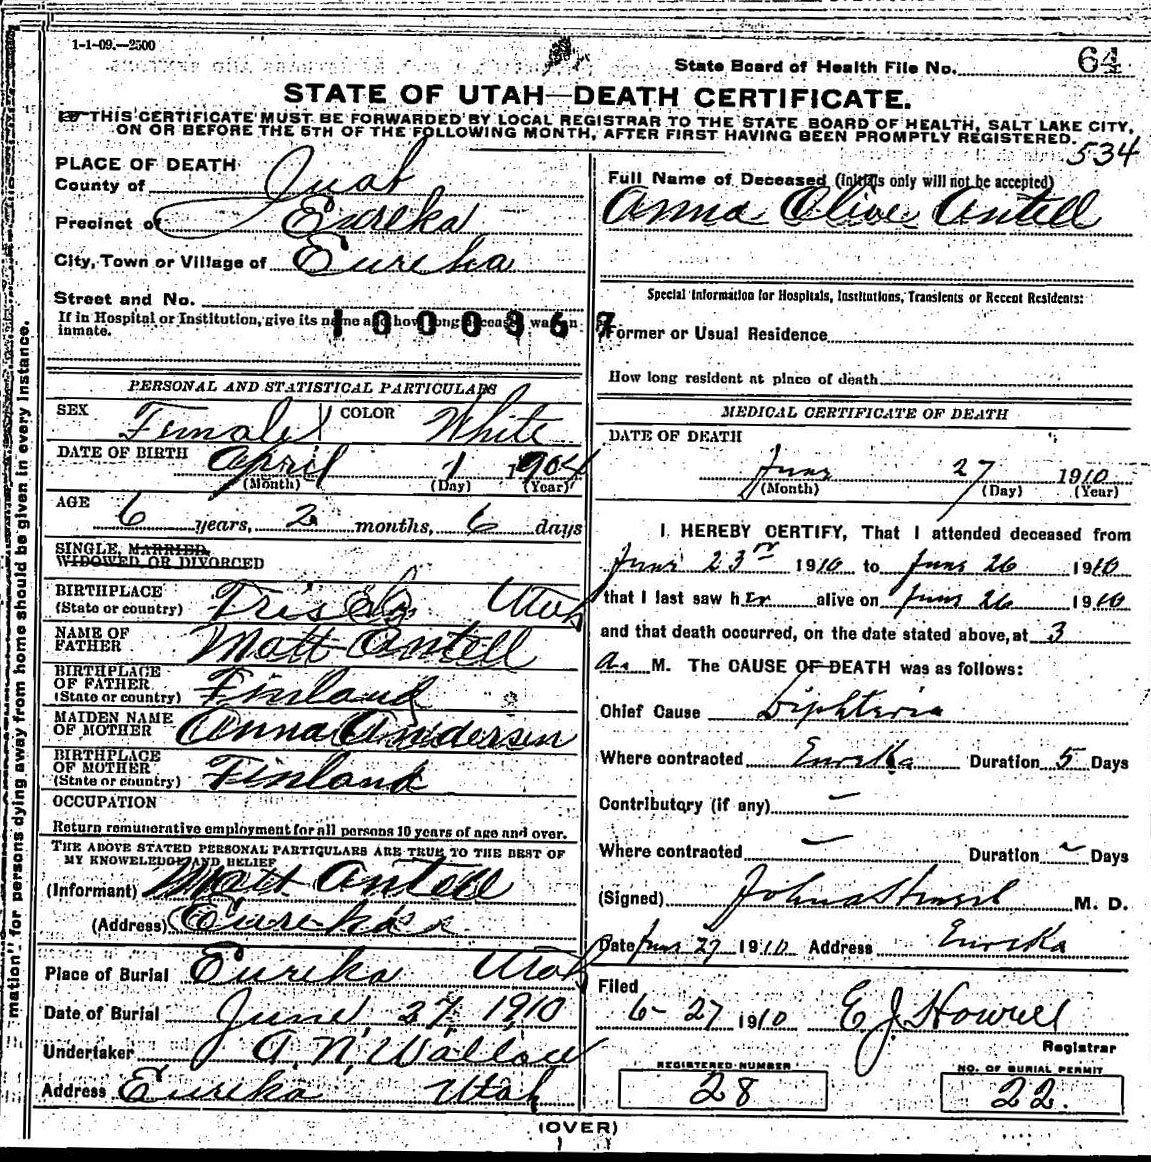 1-1-09.—2500
State Board of Health File No. 64
STATE OF UTAH—DEATH CERTIFICATE.
THIS CERTIFICATE MUST BE FORWARDED BY LOCAL REGISTRAR TO THE STATE BOARD OF HEALTH, SALT LAKE CITY,
ON OR BEFORE THE 5TH OF THE FOLLOWING MONTH, AFTER FIRST HAVING BEEN PROMPTLY REGISTERED.
534
PLACE OF DEATH
County of Juab
Precinct of Eureka
City, Town or Village of Eureka
Street and No.
If in Hospital or Institution, give its name and how long deceased was an
inmate.
1000367
Full Name of Deceased (initials only will not be accepted)
Anna Olive Antell
Special Information for Hospitals, Institutions, Transients or Recent Residents:
Former or Usual Residence
How long resident at place of death
PERSONAL AND STATISTICAL PARTICULARS
SEX Female COLOR White
DATE OF BIRTH April 1 1904
(Month) (Day) (Year)
AGE 6 years, 2 months, 6 days
SINGLE, MARRIED,
WIDOWED OR DIVORCED
BIRTHPLACE
(State or country) Utah
NAME OF
FATHER Matt Antell
BIRTHPLACE
OF FATHER
(State or country) Finland
MAIDEN NAME
OF MOTHER Anna Andersen
BIRTHPLACE
OF MOTHER
(State or country) Finland
OCCUPATION
Return remunerative employment for all persons 10 years of age and over.
THE ABOVE STATED PERSONAL PARTICULARS ARE TRUE TO THE BEST OF
MY KNOWELEDGE AND BELIEF
(Informant) Matt Antell
(Address) Eureka
Place of Burial Eureka Utah
Date of Burial June 27, 1910
Undertaker A. N. Wallace
Address Eureka Utah
MEDICAL CERTIFICATE OF DEATH
DATE OF DEATH
June 27 1910
(Month) (Day) (Year)
I HEREBY CERTIFY, That I attended deceased from
June 23rd 1910 to June 26 1910
that I last saw her alive on June 26 1910
and that death occurred, on the date stated above, at 3
a. M. The CAUSE OF DEATH was as follows:
Chief Cause Diphteria
Where contracted Eureka Duration 5 Days
Contributory (if any) —
Where contracted — Duration — Days
(Signed) M. D.
Date June 27 1910 Address Eureka
Filed
6-27 1910 E J Howell
Registrar
REGISTERED NUMBER
28
NO. OF BURIAL PERMIT
22.
(OVER)
mation" for persons dying away from home should be given in every instance.